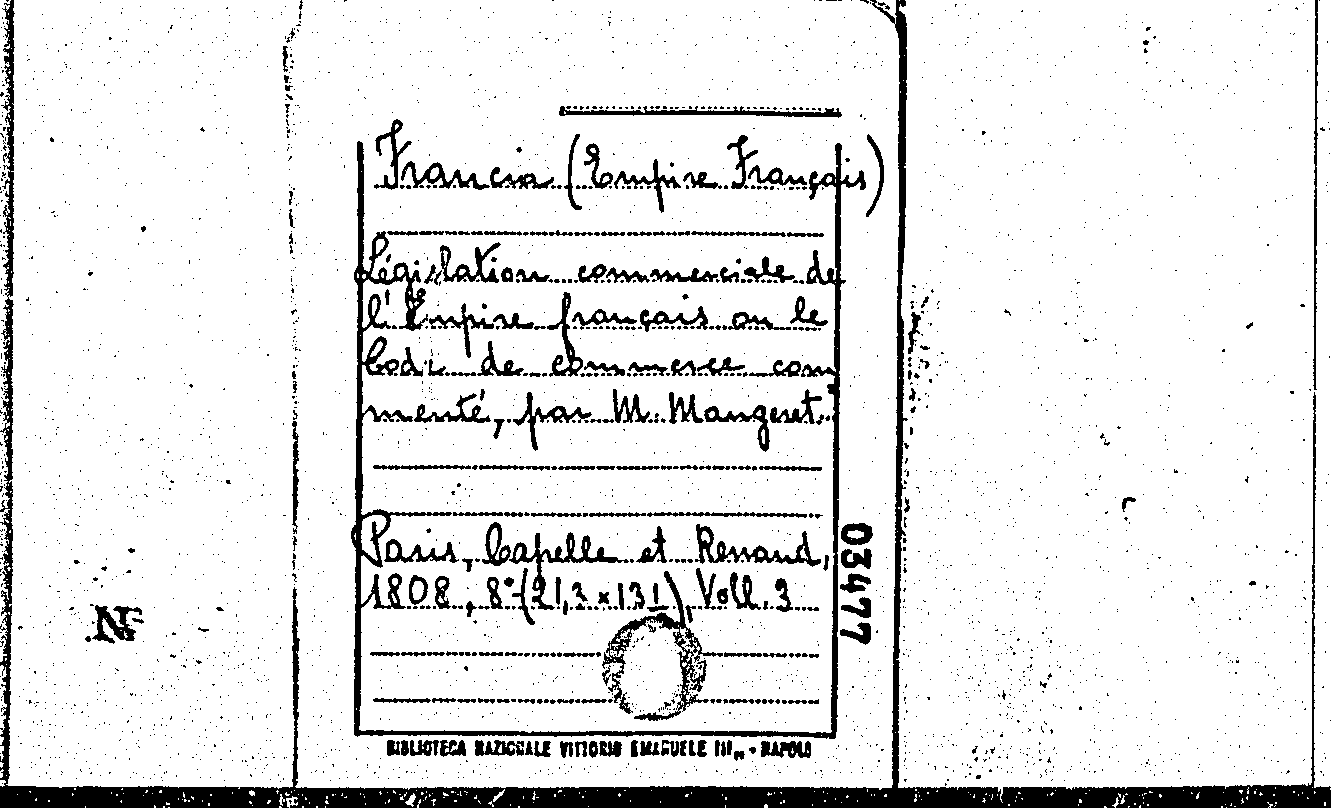 Francia (Empire Français)
Législation commerciale de
l'Empire français ou le
Code de commerce com
menté, par M. Maugeret.
Paris, Capelle et Renand,
1808, 8° (21,3 x 13 1), Voll. 3
03477
BIBLIOTECA NAZIONALE VITTORIO EMANUELE III - NAPOLI